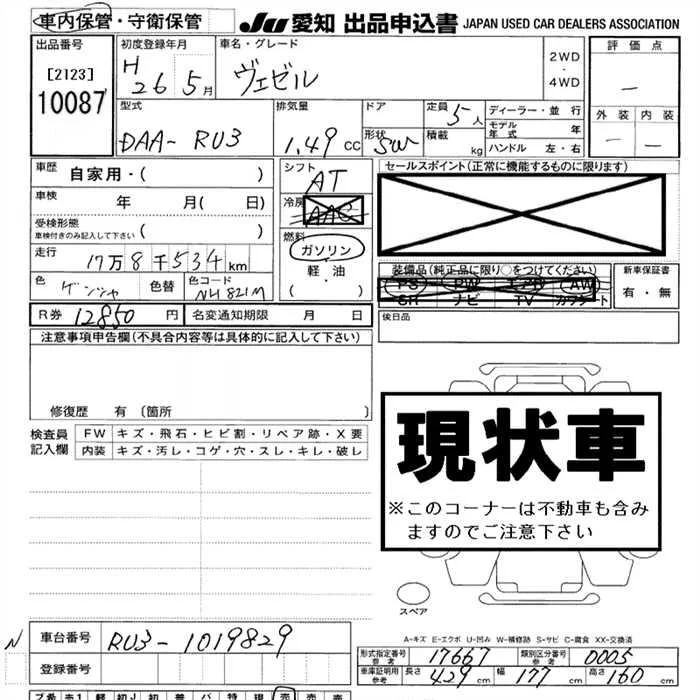 車内保管・守衛保管 JU 愛知 出品申込書 JAPAN USED CAR DEALERS ASSOCIATION
出品番号 初度登録年月 車名・グレード 2WD・4WD 評価点
[2123] H 26 5月 ヴェゼル －
10087
型式 排気量 ドア 定員 5人 ディーラー・並行 外装 内装
モデル年式 年
DAA-RU3 1.49 CC 形状 SW 積載 kg ハンドル 左・右 － －
車歴 自家用・( ) シフト AT セールスポイント(正常に機能するものに限ります)
車検 年 月( 日) 冷房 AAC
受検形態 ( )
車検付きのみ記入して下さい
燃料 ガソリン・軽油・( )
走行 17万8千534km
装備品(純正品に限り○をつけてください) 新車保証書
色 色替 色コード NH821M PS PW エアB AW 有・無
SR ナビ TV カワシート
R券 12850円 名変通知期限 月 日 後日品
注意事項申告欄(不具合内容等は具体的に記入して下さい)
修復歴 有 [箇所 ]
現状車
※このコーナーは不動車も含みますのでご注意下さい
検査員記入欄 FW キズ・飛石・ヒビ割・リペア跡・X要
内装 キズ・汚レ・コゲ・穴・スレ・キレ・破レ
スペア
A-キズ E-エクボ U-凹み W-補修跡 S-サビ C-腐食 XX-交換済
N 車台番号 RU3-1019829
形式指定番号 参考 17667 類別区分番号 参考 0005
登録番号 車庫証明用 参考 長さ 429 cm 幅 177 cm 高さ 160 cm